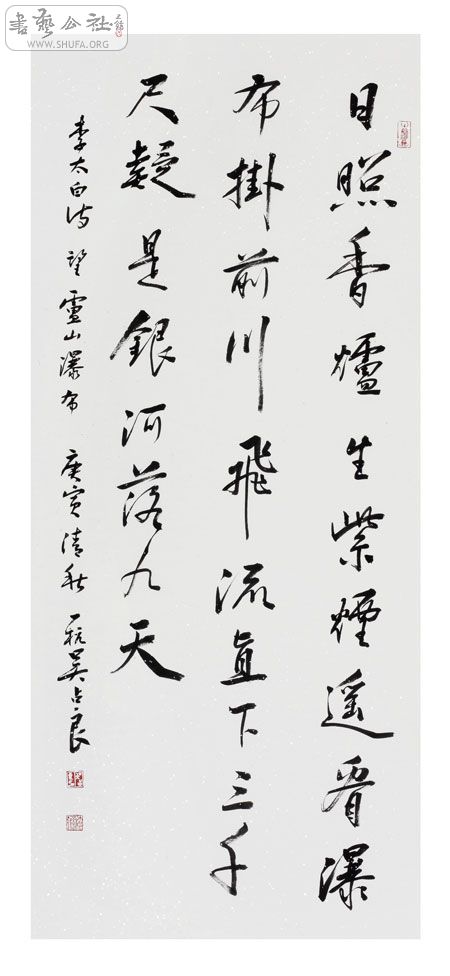 書藝公社
WWW.SHUFA.ORG
日照香爐生紫煙遥看瀑
布掛前川飛流直下三千
尺疑是銀河落九天
李太白詩 望廬山瀑布 庚寅清秋 吴占良